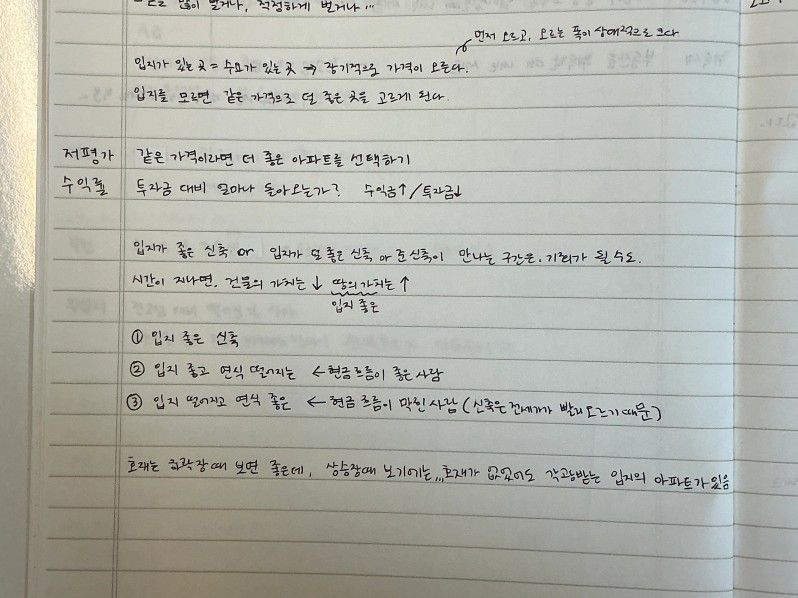 많이 벌거나, 적정하게 벌거나...
먼저 오르고, 오르는 폭이 상대적으로 크다
입지가 있는 곳 = 수요가 있는 곳 → 장기적으로 가격이 오른다.
입지를 모르면 같은 가격으로 덜 좋은 곳을 고르게 된다.
저평가 같은 가격이라면 더 좋은 아파트를 선택하기
수익률 투자금 대비 얼마나 돌아오는가? 수익금↑/투자금↓
입지가 좋은 신축 or 입지가 덜 좋은 신축 or 준신축이 만나는 구간은, 기회가 될 수도.
시간이 지나면, 건물의 가치는 ↓ 땅의 가치는 ↑
입지 좋은
① 입지 좋은 신축
② 입지 좋고 연식 떨어지는 ← 현금흐름이 좋은 사람
③ 입지 떨어지고 연식 좋은 ← 현금흐름이 막힌 사람 (신축은 전세가가 빨리 오르기 때문)
호재는 하락장때 보면 좋은데, 상승장때 보기에는... 호재가 없었어도 각광받는 입지의 아파트가 있음